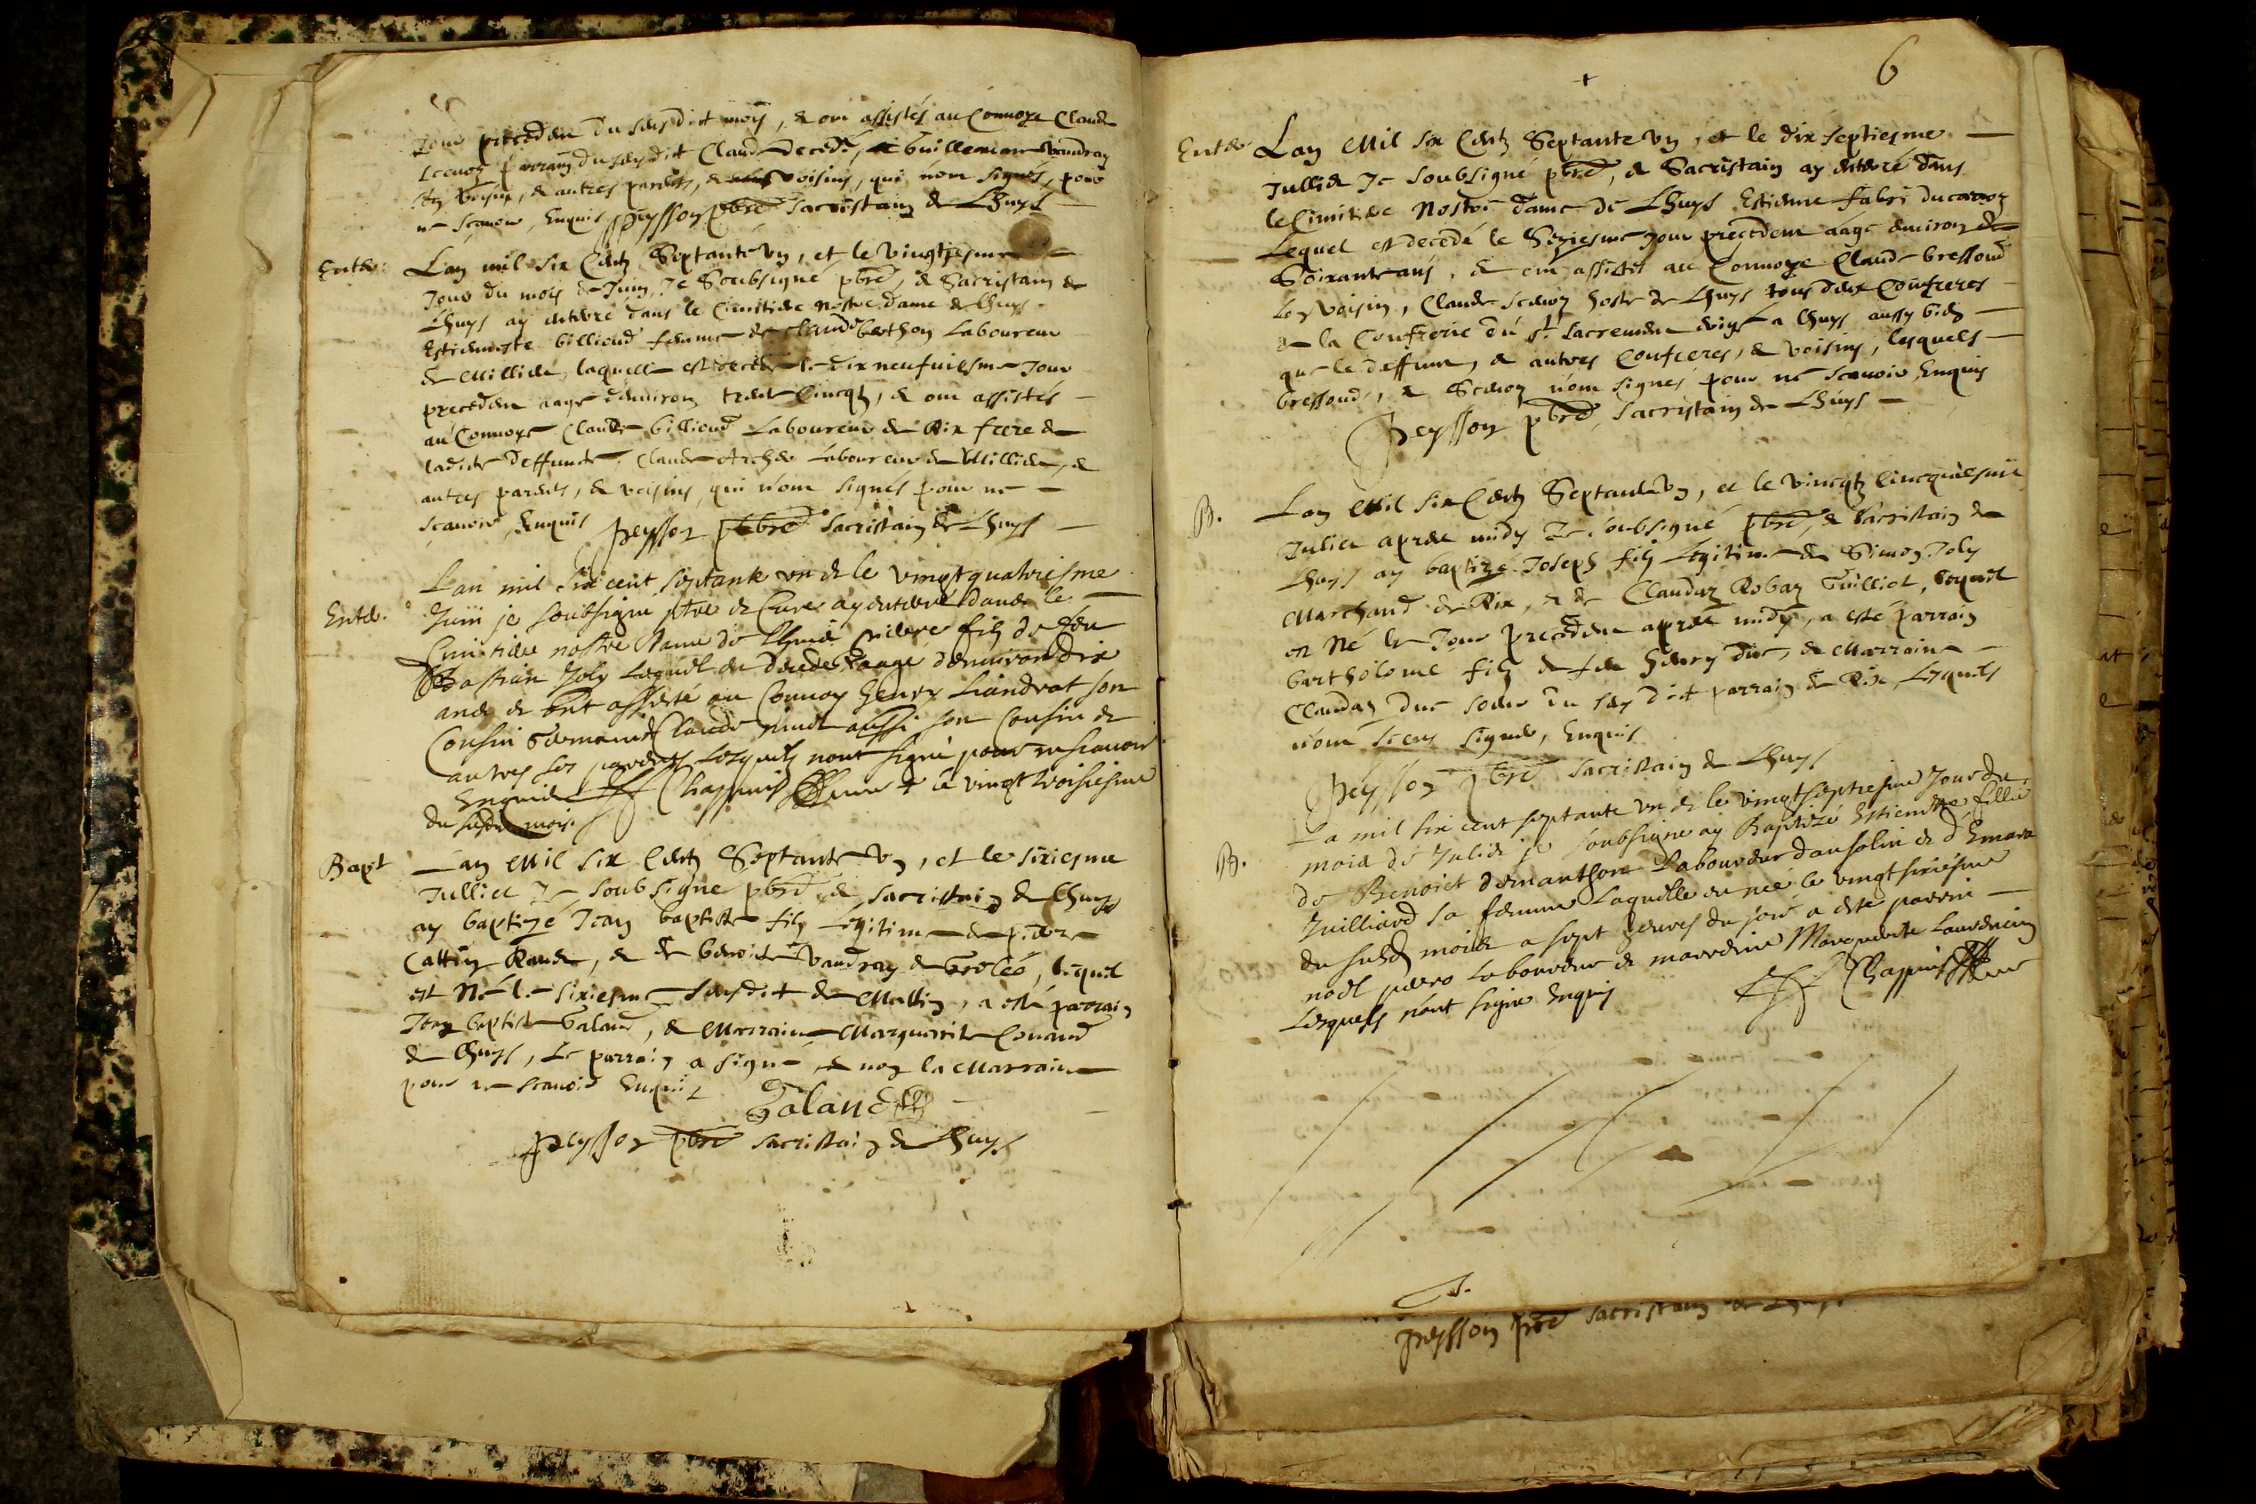 Jour precedent du susdict mois, & ont assistés au Convoye Claude
parrain du susdit Claude decedé, & Guillemoine Vaudray
voisins, & autres parents, & voisins, qui n'ont signés, pour
ne scavoir, Enquis Peysson pbre Sacristain de Lhuys
Enter: Lan mil six Centz Septante Vn, et le Vingtiesme
Jour du mois de Juin, Je Soubsigné pbre, & Sacristain de
Lhuys ay enterré dans le Cimitiere Nostre dame de Lhuys
Estiennette billioud femme de Claude berthon Laboureur
de Millieu, laquelle est decedée le dix neufuiesme Jour
precedent aage d'environ trente Cincqz, & ont assistés
au Convoye Claude billioud Laboureur de Rix frere de
ladite deffuncte, Claude Laboureur de Millieu, &
autres parents, & voisins, qui n'ont signés pour ne
scavoir, Enquis Peysson pbre Sacristain de Lhuys
Lan mil six cent septante vn & le vingt quatriesme
Enter. Juin je soubsigne ptre & Cure ay enterré dans le
Cimitiere nostre Dame de Lhuis piderre filz de feu
Bastian Joly Lequel est decede aage d'environ dix
ans & ont assisté au Convoy Henry Liandrat son
Cousin Germain Claude aussi son Cousin &
autres ses parents Lesquels n'ont signé pour ne scavoir
Enquis Chappuis Cure + le vingt troisiesme
du susd. mois.
Bapt Lan Mil six Centz Septante Vn, et le sixiesme
Julliet Je soubsigné pbre & sacristain de Lhuys
ay baptizé Jean baptiste filz legitime de pierre
Cattin Rande, & de benoite Vaudray de Grolée, lequel
est Né le sixiesme susdict de Mattin, a esté parrain
Jean baptiste Galand, & Marraine Marguerite Conand
de Lhuys, Le parrain a signé & non la Marraine
pour ne scavoir Enquis
Galand
Peysson pbre sacristain de Lhuys
6
Enter Lan Mil six Centz Septante Vn, et le dix septiesme
Julliet Je Soubsigné pbre, & Sacristain ay enterré dans
le Cimitiere Nostre dame de Lhuys Estienne fabri
Lequel est decedé le Seziesme Jour precedent aagé denviron de
Soixante ans, & ont assistés au Convoye Claude bressoud
Son voisin, Claude Scavoy hoste de Lhuys tous deux Confreres
de la Confrerie du St Sacrement erigé a Lhuys aussy bien
que le deffunt, & autres Confreres, & voisins, lesquels
bressoud, & Scavoy n'ont signés pour ne scavoir Enquis
Peysson pbre, Sacristain de Lhuys
B. Lan Mil six Centz Septante Vn, et le vincqtz Cincquiesme
Juliet apres midy Je soubsigné pbre, & Sacristain de
Lhuys ay baptizé Joseph filz Legitime de Simon Joly
Marchand de Rix, & de Claudaz Robaz Guilliet, lequel
est Né le Jour precedent apres midy, a esté parrain
bartholome filz de feu henry duc, & Marraine
Claudaz duc soeur du susdict parrain de Rix, Lesquels
n'ont sceus signer, Enquis
Peysson pbre Sacristain de Lhuys
B. La mil six cent septante vn & le vingt septiesme Jour du
mois de Juliet je soubsigne ay Baptizé Estiennette fillie
de Benoict demanthon Laboureur d'ansolin & d'Emara
Juilliard sa femme Laquelle est née le vingt sixiesme
du susd. mois a sept heures du soir a esté parrin
noel perro Laboureur & marrine Marguerite Laurencin
Lesquels n'ont signé Enquis Chappuis Cure
Peysson pbre sacristain de Lhuys